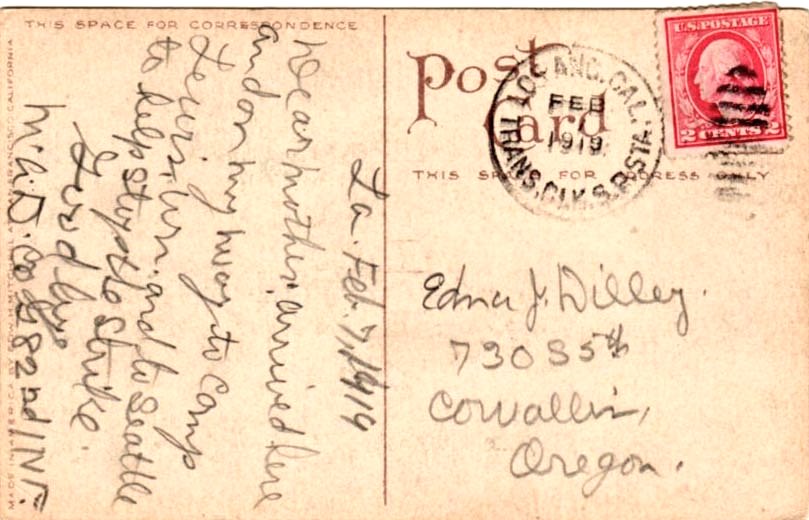 THIS SPACE FOR CORRESPONDENCE
La. Feb. 7, 1919
Dear mother, arrived here
and on my way to Camp
Lewis, Wn. and to Seattle
to help stop the strike.
Good bye
M.G.D. Co 82nd INF.
MADE IN AMERICA BY EDW. H. MITCHELL SAN FRANCISCO CALIFORNIA
Post
Card
THIS SPACE FOR ADDRESS ONLY
LOS ANG. CAL.
FEB
1919
TRANS. CLK. S.P. STA.
U.S. POSTAGE
2 CENTS 2
Edna J. Dilley.
730 S 5th
Corvallis,
Oregon.